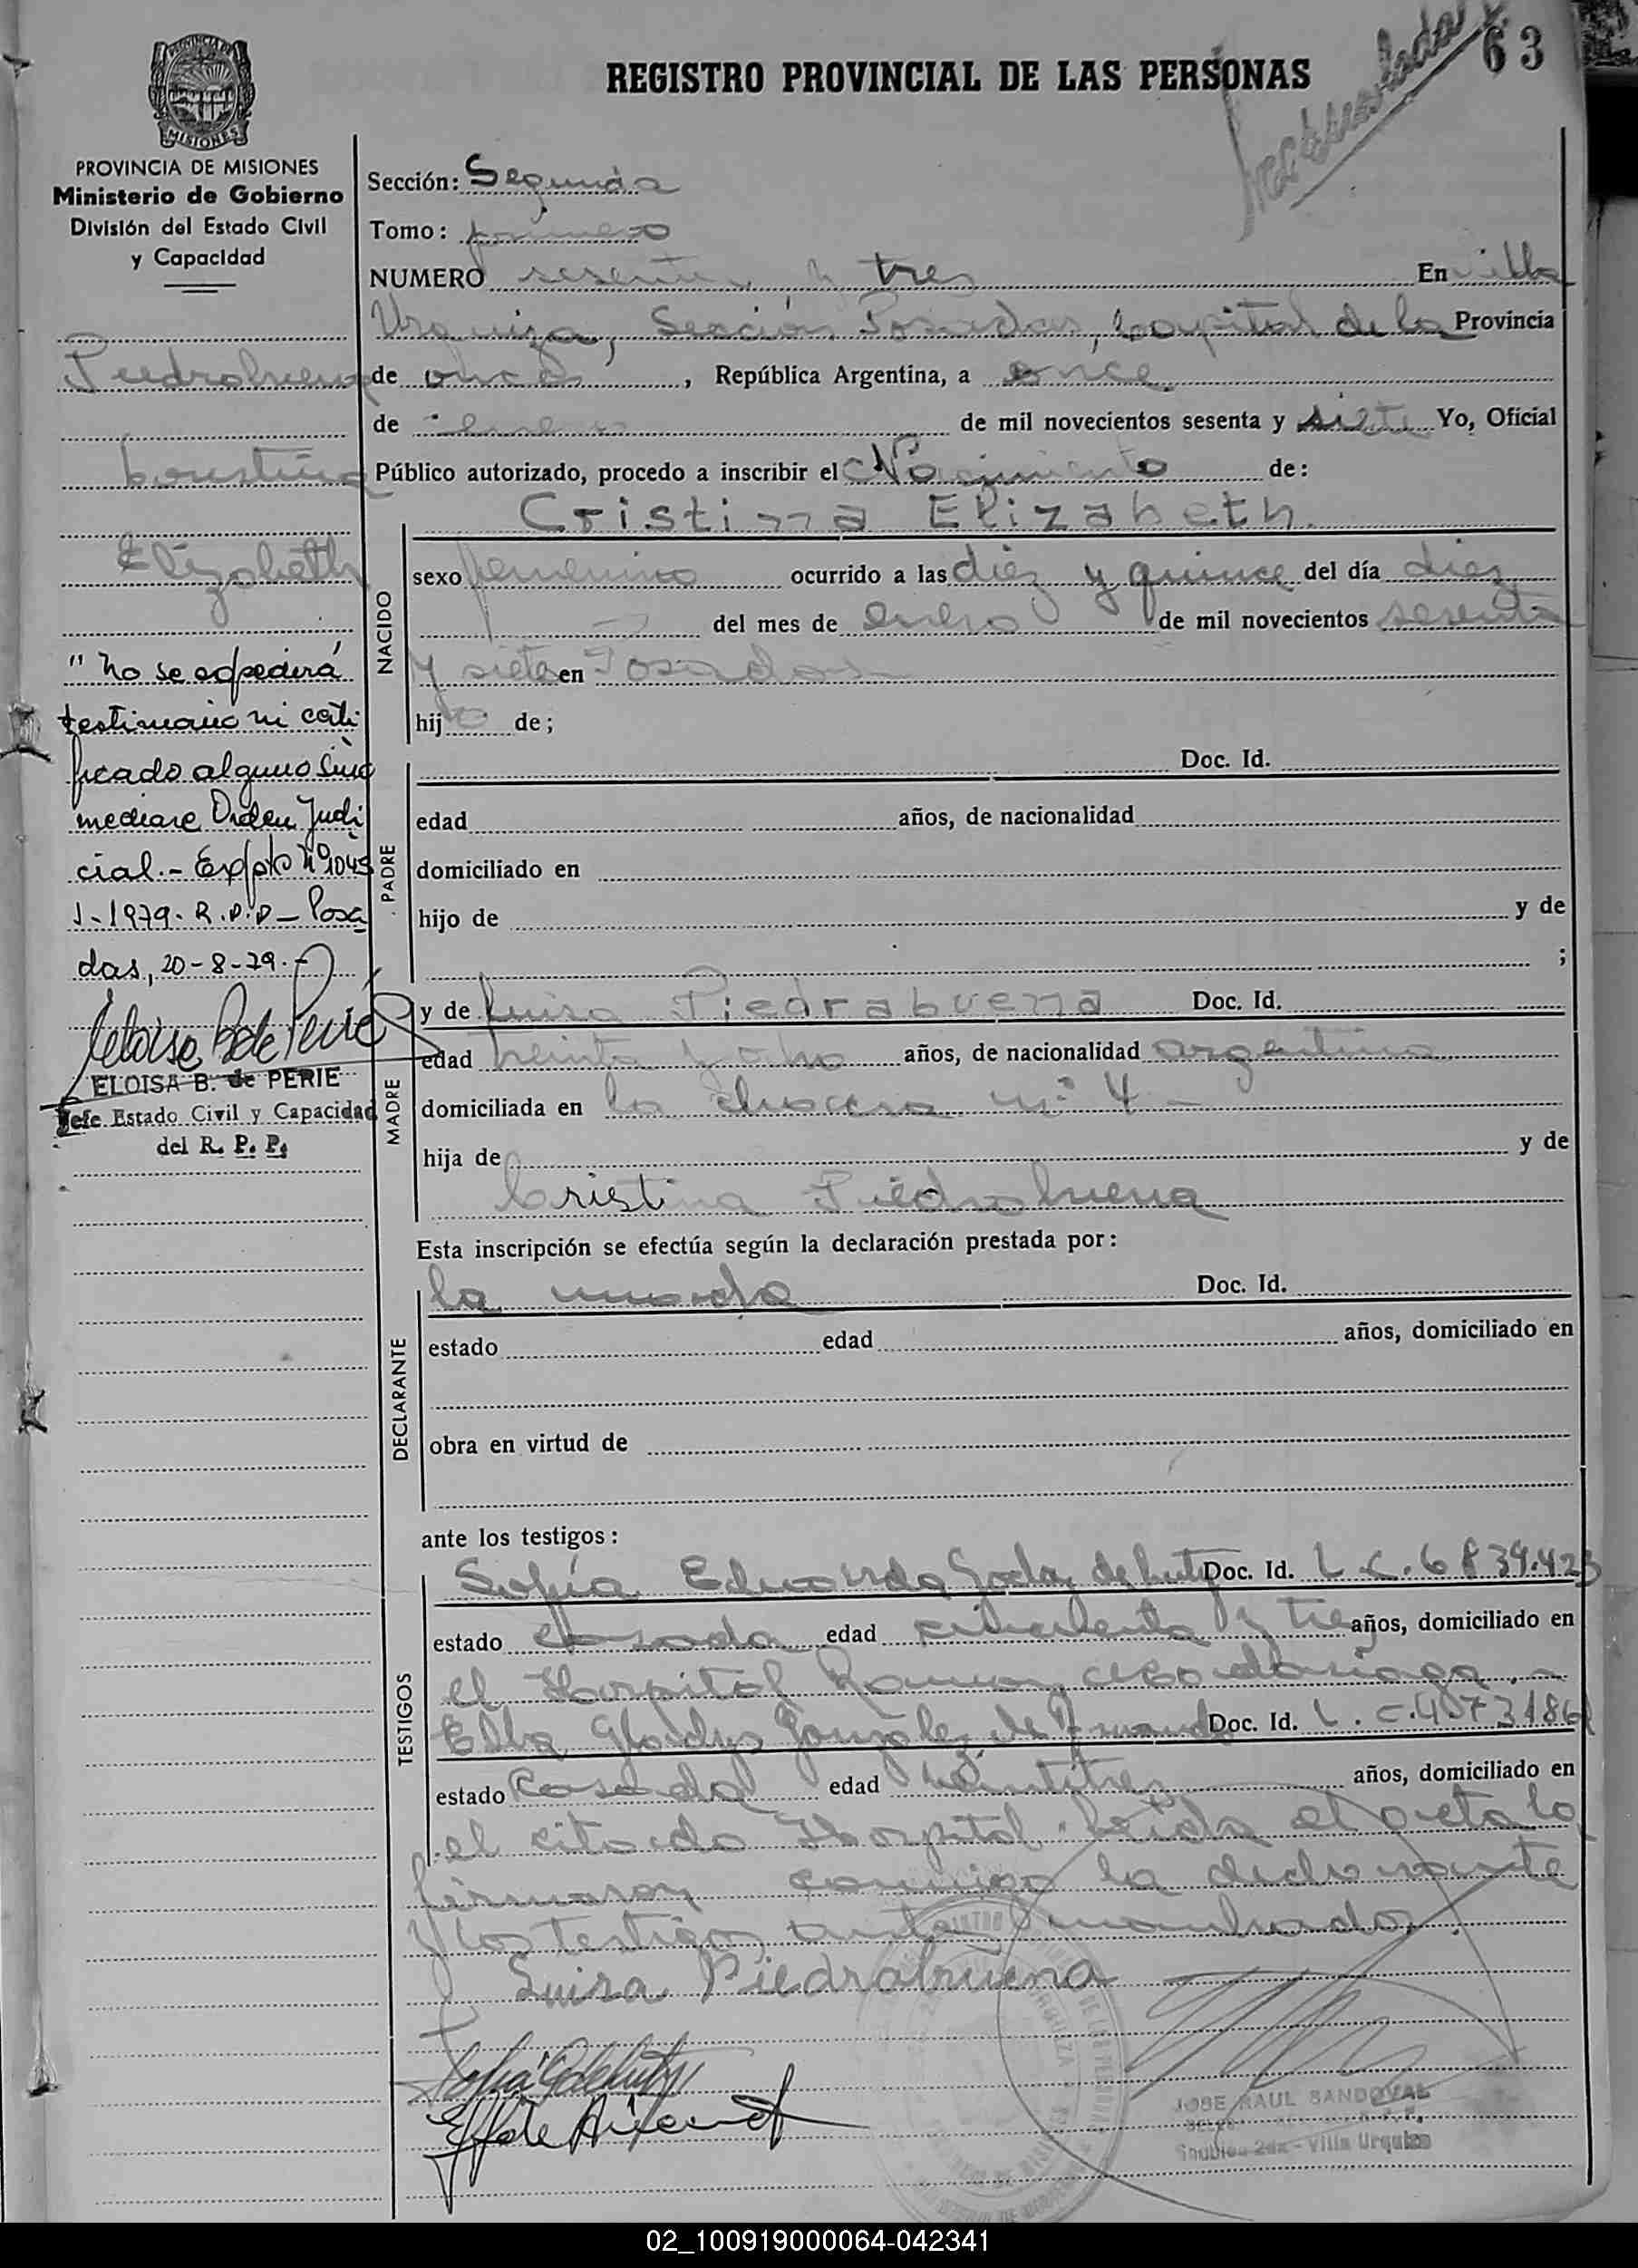 REGISTRO PROVINCIAL DE LAS PERSONAS
63
MISIONES
PROVINCIA DE MISIONES
Ministerio de Gobierno
División del Estado Civil
y Capacidad
Sección: Segunda
Tomo: primero
NUMERO sesenta y tres En Villa
Urquiza, Sección Posadas, Capital de la Provincia
de , República Argentina, a once
de enero de mil novecientos sesenta y siete Yo, Oficial
Público autorizado, procedo a inscribir el Nacimiento de:
Piedrabuena
Cristina
Elizabeth
"No se expedirá
testimonio ni certi
ficado alguno sino
mediare Orden Judi
cial.- Expte Nº 1045
J-1979- R.P.P - Posa
das, 20-8-79.-
ELOISA B. de PERIE
Jefe Estado Civil y Capacidad
del R. P. P.
NACIDO
Cristina Elizabeth
sexo femenino ocurrido a las diez y quince del día diez
del mes de enero de mil novecientos sesenta
y siete en Posadas
hija de;
PADRE
Doc. Id.
edad años, de nacionalidad
domiciliado en
hijo de y de
;
MADRE
y de Luisa Piedrabuena Doc. Id.
edad treinta y ocho años, de nacionalidad argentina
domiciliada en la chacra nº 4 -
hija de y de
Cristina Piedrabuena
Esta inscripción se efectúa según la declaración prestada por:
DECLARANTE
la madre Doc. Id.
estado edad años, domiciliado en
obra en virtud de
ante los testigos:
TESTIGOS
Sofía Eduarda Godoy de Doc. Id. L.C. 6839.423
estado casada edad cincuenta y tres años, domiciliado en
el Hospital Ramon
Elba Gladys González de Doc. Id. L.C.
estado casada edad veintitres años, domiciliado en
el citado Hospital. Leida el acta la
firmaron conmigo la declarante
y los testigos nombrados.
Luisa Piedrabuena
JOSE RAUL SANDOVAL
Villa Urquiza
02_100919000064-042341